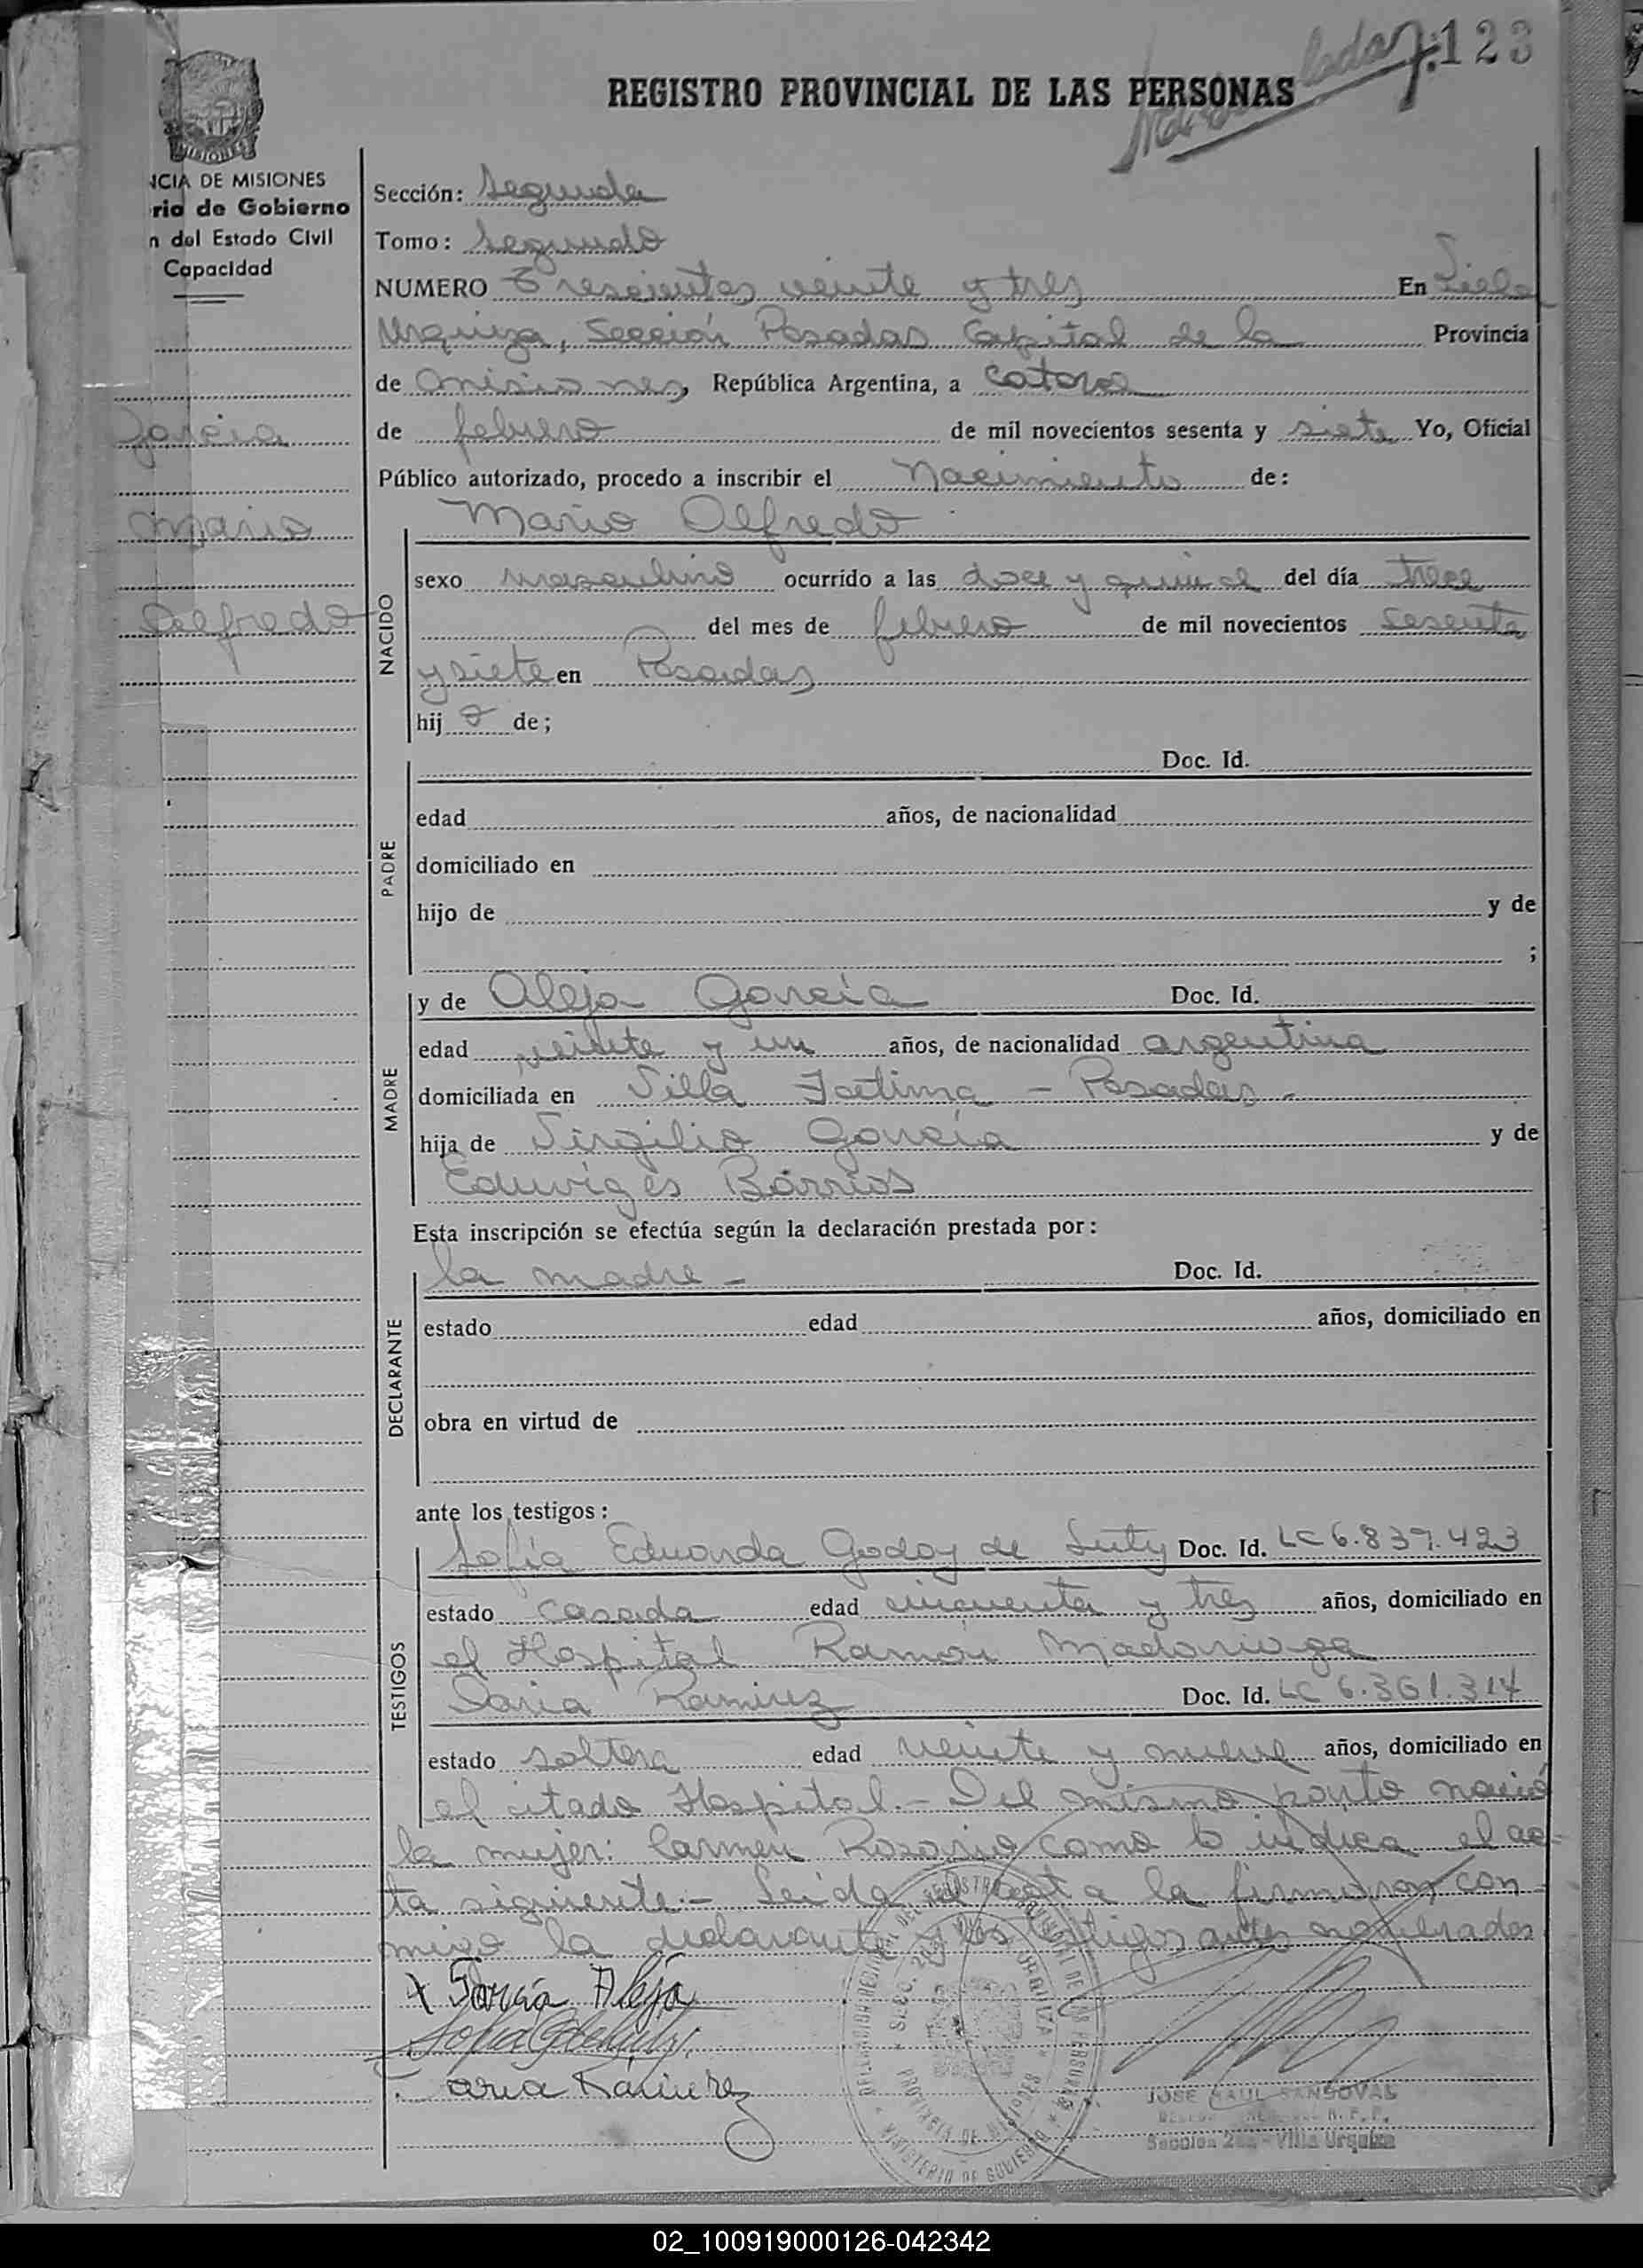 123
REGISTRO PROVINCIAL DE LAS PERSONAS
MISIONES
NCIA DE MISIONES
rio de Gobierno
n del Estado Civil
Capacidad
Sección: Segunda
Tomo: Segundo
NUMERO Trescientos veinte y tres En Villa
Urquiza, Sección Posadas Capital de la Provincia
de Misiones, República Argentina, a catorce
de febrero de mil novecientos sesenta y siete Yo, Oficial
Público autorizado, procedo a inscribir el Nacimiento de:
García
Mario
Alfredo
NACIDO
Mario Alfredo
sexo masculino ocurrido a las doce y quince del día trece
del mes de febrero de mil novecientos sesenta
y siete en Posadas
hij o de;
PADRE
Doc. Id.
edad años, de nacionalidad
domiciliado en
hijo de y de
;
MADRE
y de Aleja García Doc. Id.
edad veinte y un años, de nacionalidad argentina
domiciliada en Villa Fatima - Posadas -
hija de Virgilio García y de
Eduviges Barrios
Esta inscripción se efectúa según la declaración prestada por:
DECLARANTE
la madre - Doc. Id.
estado edad años, domiciliado en
obra en virtud de
ante los testigos:
TESTIGOS
Sofía Eduarda Godoy de Doc. Id. LC 6.839.423
estado casada edad cincuenta y tres años, domiciliado en
el Hospital Ramón Madariaga
Daria Ramirez Doc. Id. LC 6.361.314
estado soltera edad veinte y nueve años, domiciliado en
el citado Hospital.- Del mismo parto nació
la mujer: Carmen Rosario como lo indica el ac-
ta siguiente.- Leída el acta la firmaron con-
migo la declarante y los testigos antes nombrados
x García Aleja
aria Ramirez
JOSE RAUL SANDOVAL
R. P. P.
Sección 2da - Villa Urquiza
MINISTERIO DE GOBIERNO
PROVINCIA DE MISIONES
02_100919000126-042342